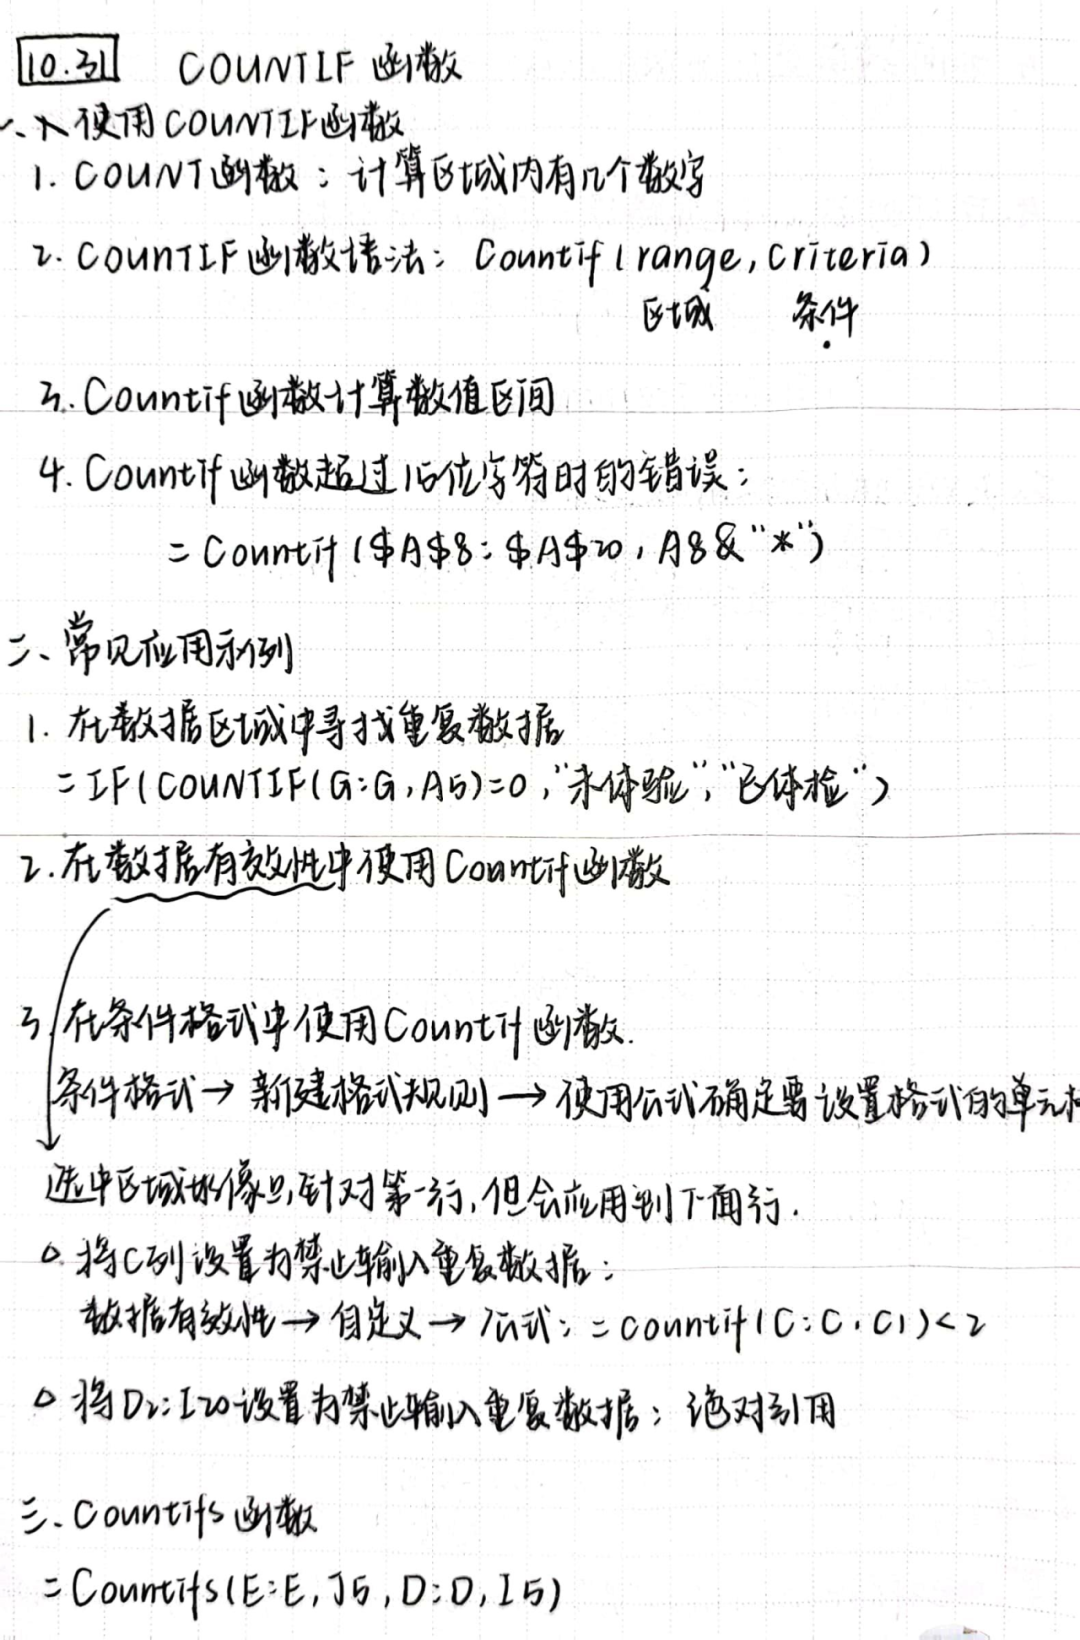 10.31 COUNTIF 函数
一、使用COUNTIF函数
1. COUNT函数：计算区域内有几个数字
2. COUNTIF函数语法：Countif(range,criteria)
区域 条件
3. Countif函数计算数值区间
4. Countif函数超过15位字符时的错误：
=Countif($A$8:$A$20,A8&"*")
二、常见应用示列
1. 在数据区域中寻找重复数据
=IF(COUNTIF(G:G,A5)=0,"未体验","已体检")
2. 在数据有效性中使用Countif函数
3. 在条件格式中使用Countif函数.
条件格式→新建格式规则→使用公式确定要设置格式的单元格
选中区域好像只针对第一行,但会应用到下面行.
将C列设置为禁止输入重复数据：
数据有效性→自定义→公式：=countif(C:C,C1)<2
将D2:I20设置为禁止输入重复数据：绝对引用
三、Countifs函数
=Countifs(E:E,J5,D:D,I5)